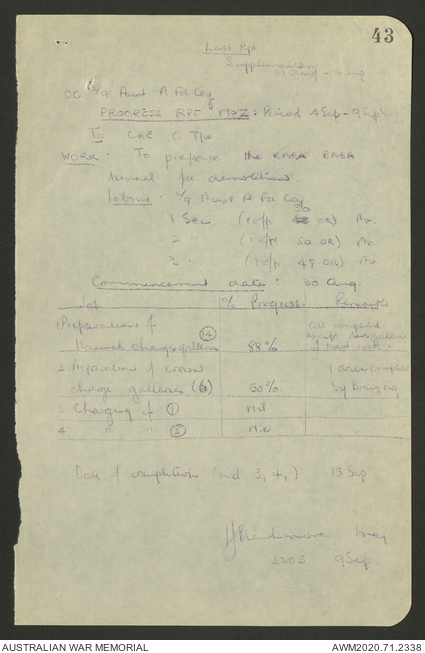 43
Last Rpt
Supplementary
Aug - Sep
OC 2/9 Aust A Fd Coy
PROGRESS RPT No 2: Period 4 Sep - 9 Sep
To CRE C Tps
WORK: To prepare the KARA BABA
tunnel for demolition.
Labour: 2/9 Aust A Fd Coy
30
1 Sec (1 offr OR) Av.
2 " (1 offr 50 OR) Av
3 " (1 offr 48 OR) Av
Commencement date: 30 Aug.
Job % Progress Remarks
1 Preparation of (14) All completed
charge galleries 88% of hard rock.
2 Preparation of crown 1
charge galleries (6) 50% by
3 Charging of (1) Nil
4 " " (2) Nil
Date of completion (incl 3, 4,) 13 Sep
Maj
9 Sep.
AUSTRALIAN WAR MEMORIAL
AWM2020.71.2338